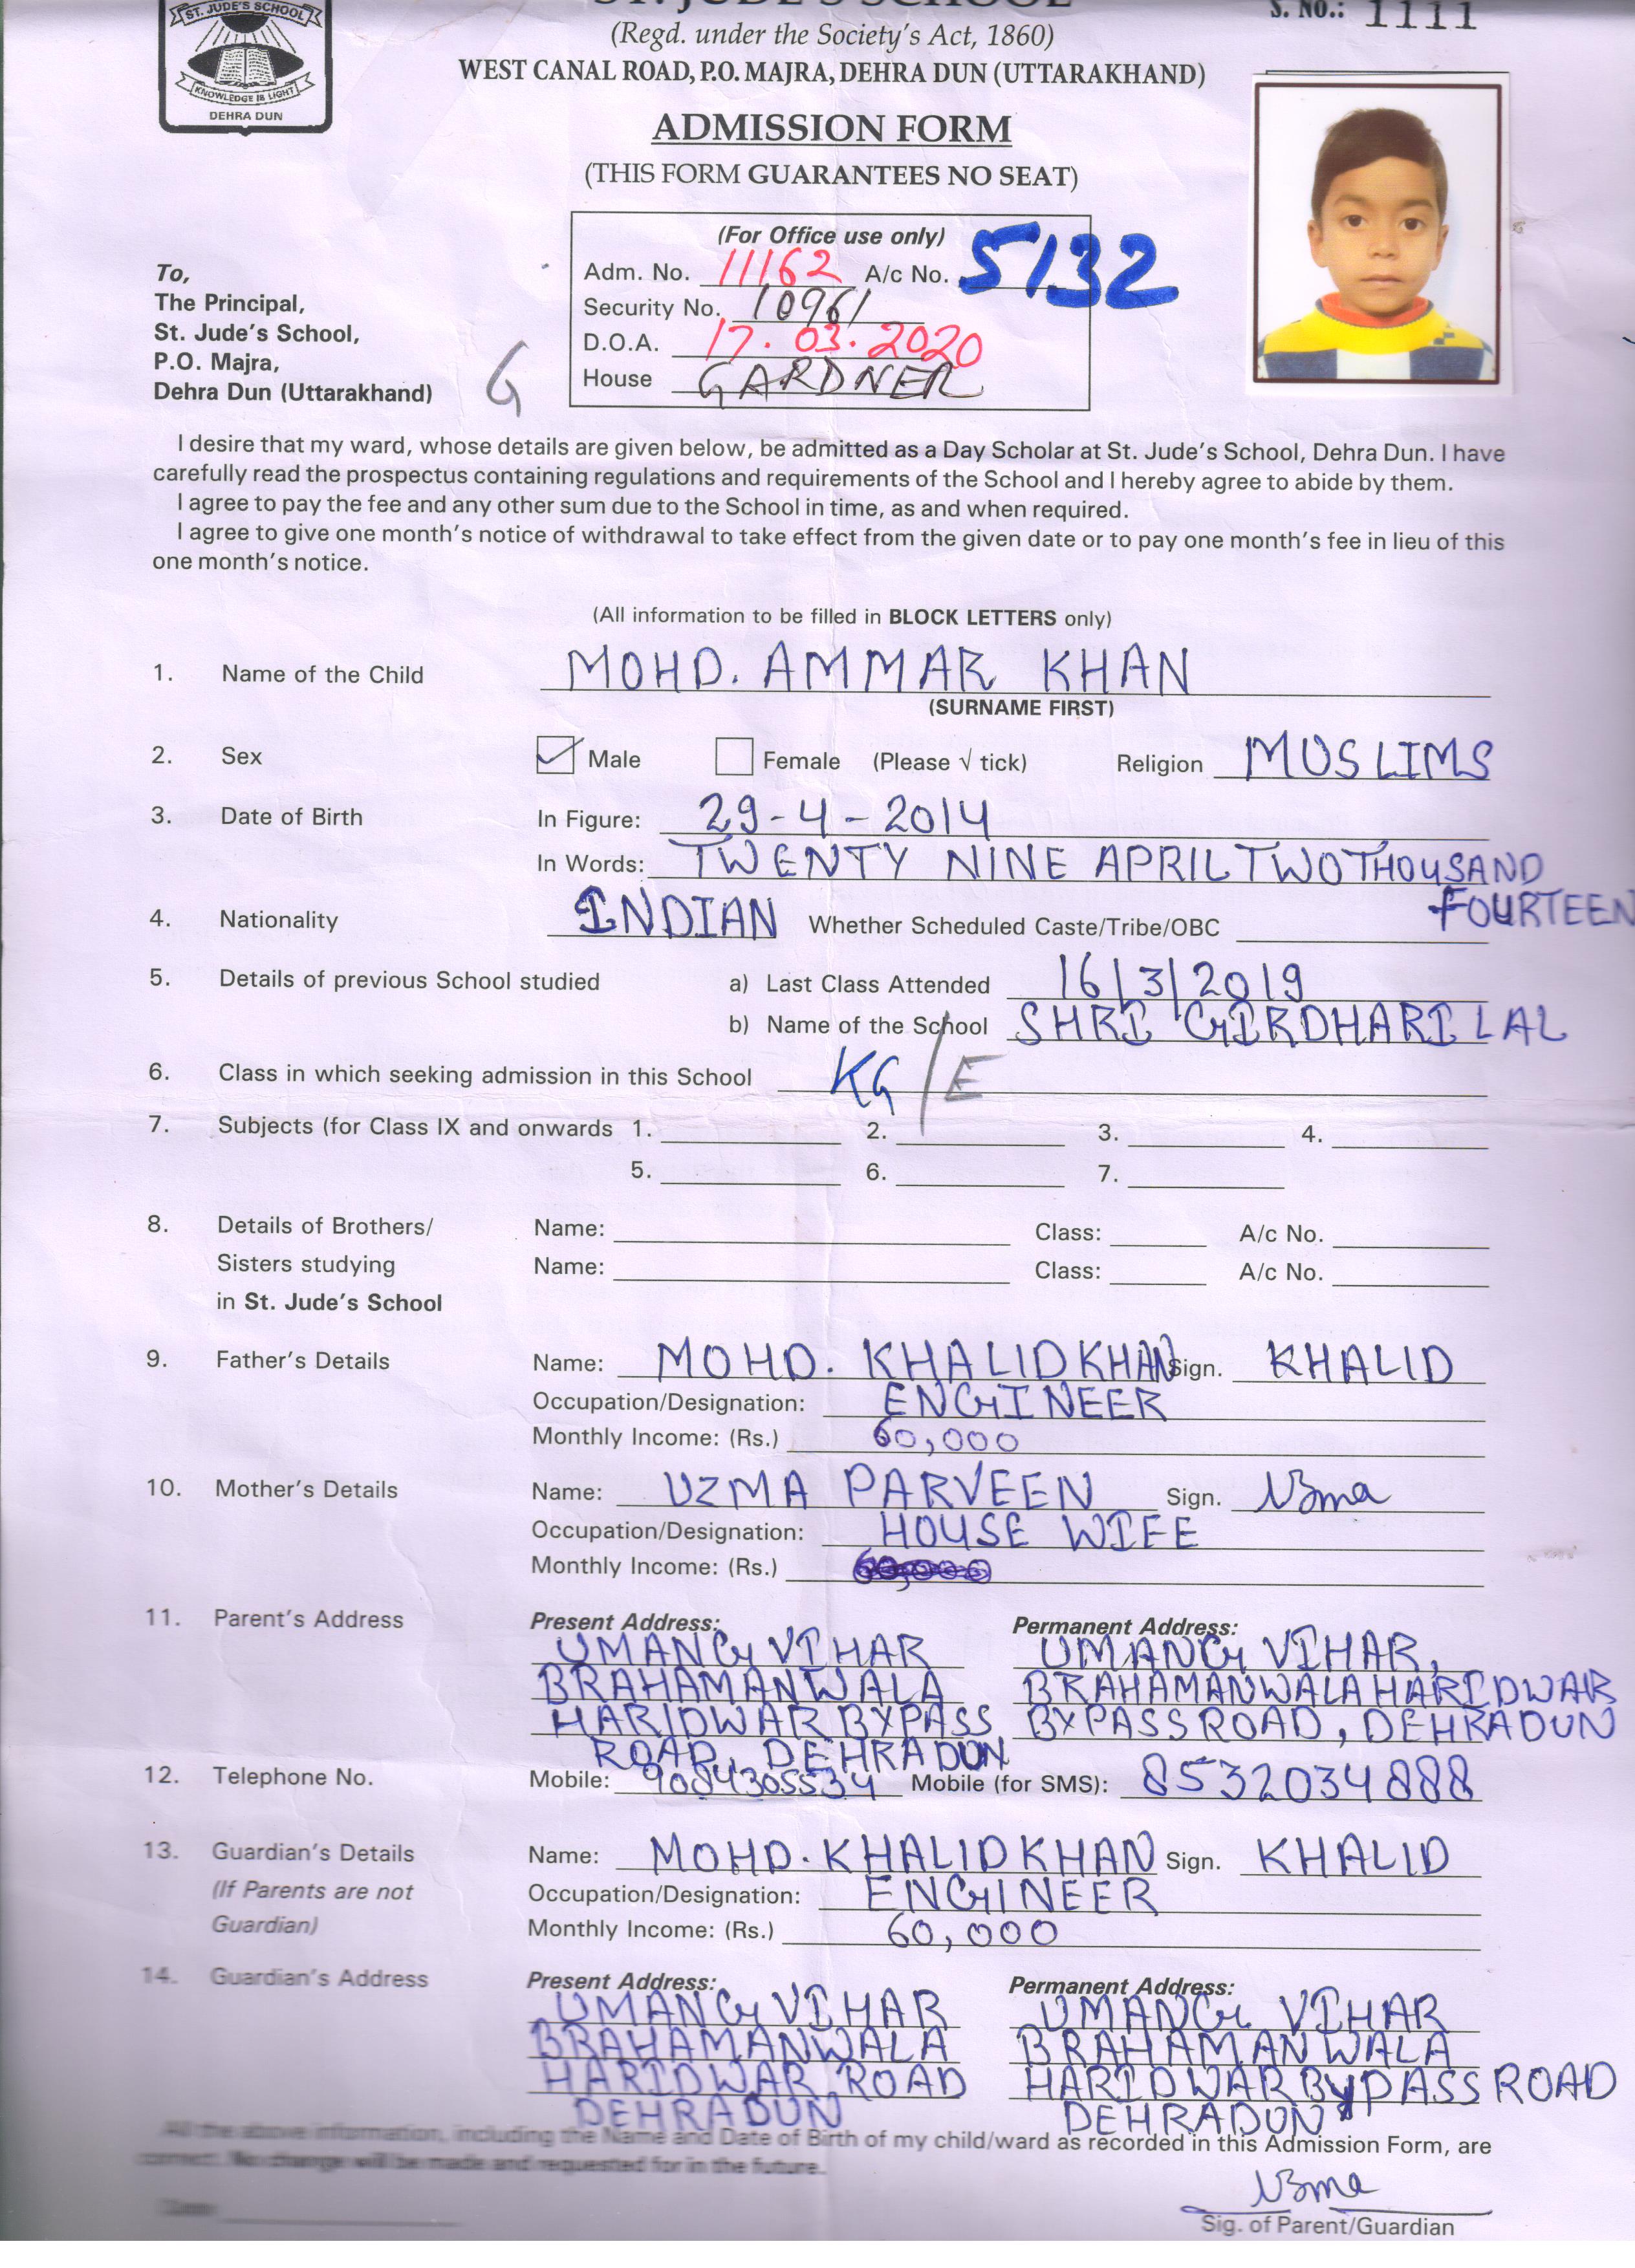 ST. JUDE'S SCHOOL
KNOWLEDGE IS LIGHT
DEHRA DUN
ST. JUDE'S SCHOOL
S. NO.: 1111
(Regd. under the Society's Act, 1860)
WEST CANAL ROAD, P.O. MAJRA, DEHRA DUN (UTTARAKHAND)
ADMISSION FORM
(THIS FORM GUARANTEES NO SEAT)
(For Office use only)
Adm. No. 11162 A/c No. 5132
Security No. 10961
D.O.A. 17.03.2020
House GARDNER
To,
The Principal,
St. Jude's School,
P.O. Majra,
Dehra Dun (Uttarakhand)
G
I desire that my ward, whose details are given below, be admitted as a Day Scholar at St. Jude's School, Dehra Dun. I have
carefully read the prospectus containing regulations and requirements of the School and I hereby agree to abide by them.
I agree to pay the fee and any other sum due to the School in time, as and when required.
I agree to give one month's notice of withdrawal to take effect from the given date or to pay one month's fee in lieu of this
one month's notice.
(All information to be filled in BLOCK LETTERS only)
1. Name of the Child MOHD. AMMAR KHAN
(SURNAME FIRST)
2. Sex Male Female (Please √ tick) Religion MUSLIMS
3. Date of Birth In Figure: 29-4-2014
In Words: TWENTY NINE APRIL TWO THOUSAND
FOURTEEN
4. Nationality INDIAN Whether Scheduled Caste/Tribe/OBC
5. Details of previous School studied a) Last Class Attended 16/3/2019
b) Name of the School SHRI GIRDHARI LAL
6. Class in which seeking admission in this School KG/E
7. Subjects (for Class IX and onwards 1. 2. 3. 4.
5. 6. 7.
8. Details of Brothers/ Name: Class: A/c No.
Sisters studying Name: Class: A/c No.
in St. Jude's School
9. Father's Details Name: MOHD. KHALID KHAN Sign. KHALID
Occupation/Designation: ENGINEER
Monthly Income: (Rs.) 60,000
10. Mother's Details Name: UZMA PARVEEN Sign. Uzma
Occupation/Designation: HOUSE WIFE
Monthly Income: (Rs.)
11. Parent's Address Present Address: Permanent Address:
UMANG VIHAR UMANG VIHAR,
BRAHAMANWALA BRAHAMANWALA HARIDWAR
HARIDWAR BYPASS BYPASS ROAD, DEHRADUN
ROAD, DEHRADUN
12. Telephone No. Mobile: 9084305534 Mobile (for SMS): 8532034888
13. Guardian's Details Name: MOHD. KHALID KHAN Sign. KHALID
(If Parents are not Occupation/Designation: ENGINEER
Guardian) Monthly Income: (Rs.) 60,000
14. Guardian's Address Present Address: Permanent Address:
UMANG VIHAR UMANG VIHAR
BRAHAMANWALA BRAHAMANWALA
HARIDWAR ROAD HARIDWAR BYPASS ROAD
DEHRADUN DEHRADUN
All the above information, including the Name and Date of Birth of my child/ward as recorded in this Admission Form, are
correct. No change will be made and requested for in the future.
Uzma
Sig. of Parent/Guardian